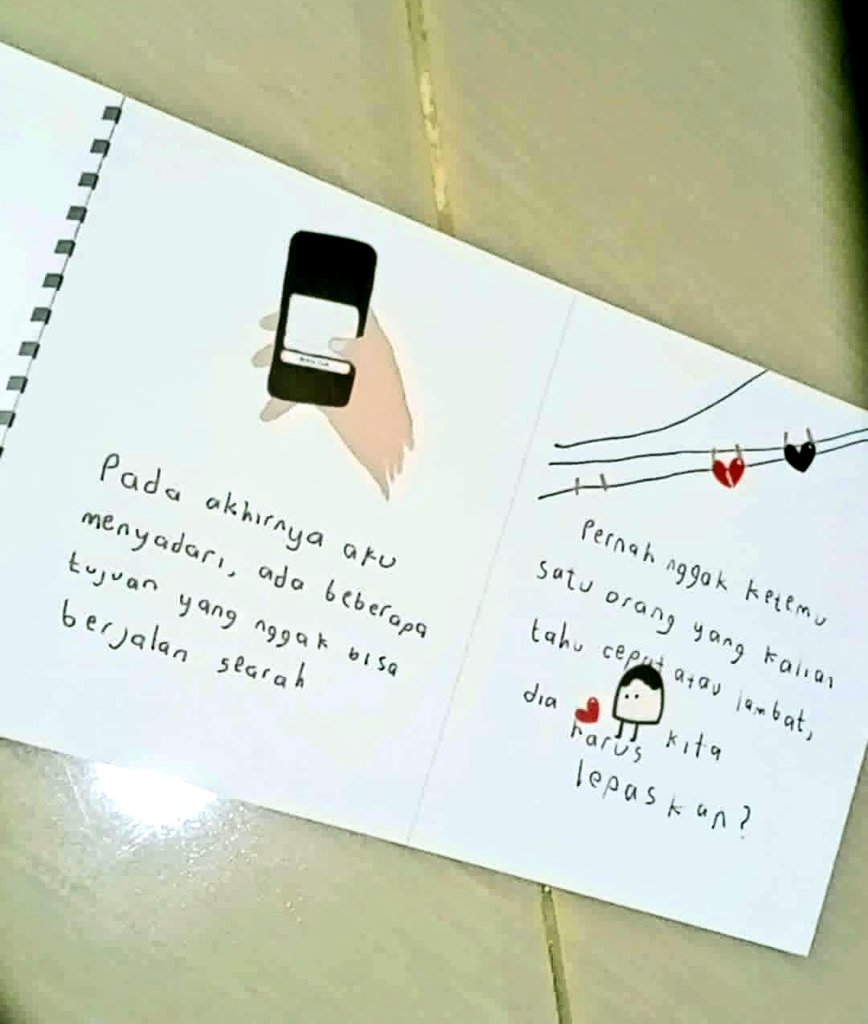 Pada akhirnya aku
menyadari, ada beberapa
tujuan yang nggak bisa
berjalan searah
Pernah nggak ketemu
satu orang yang kalian
tahu cepat atau lambat,
dia harus kita
lepaskan?